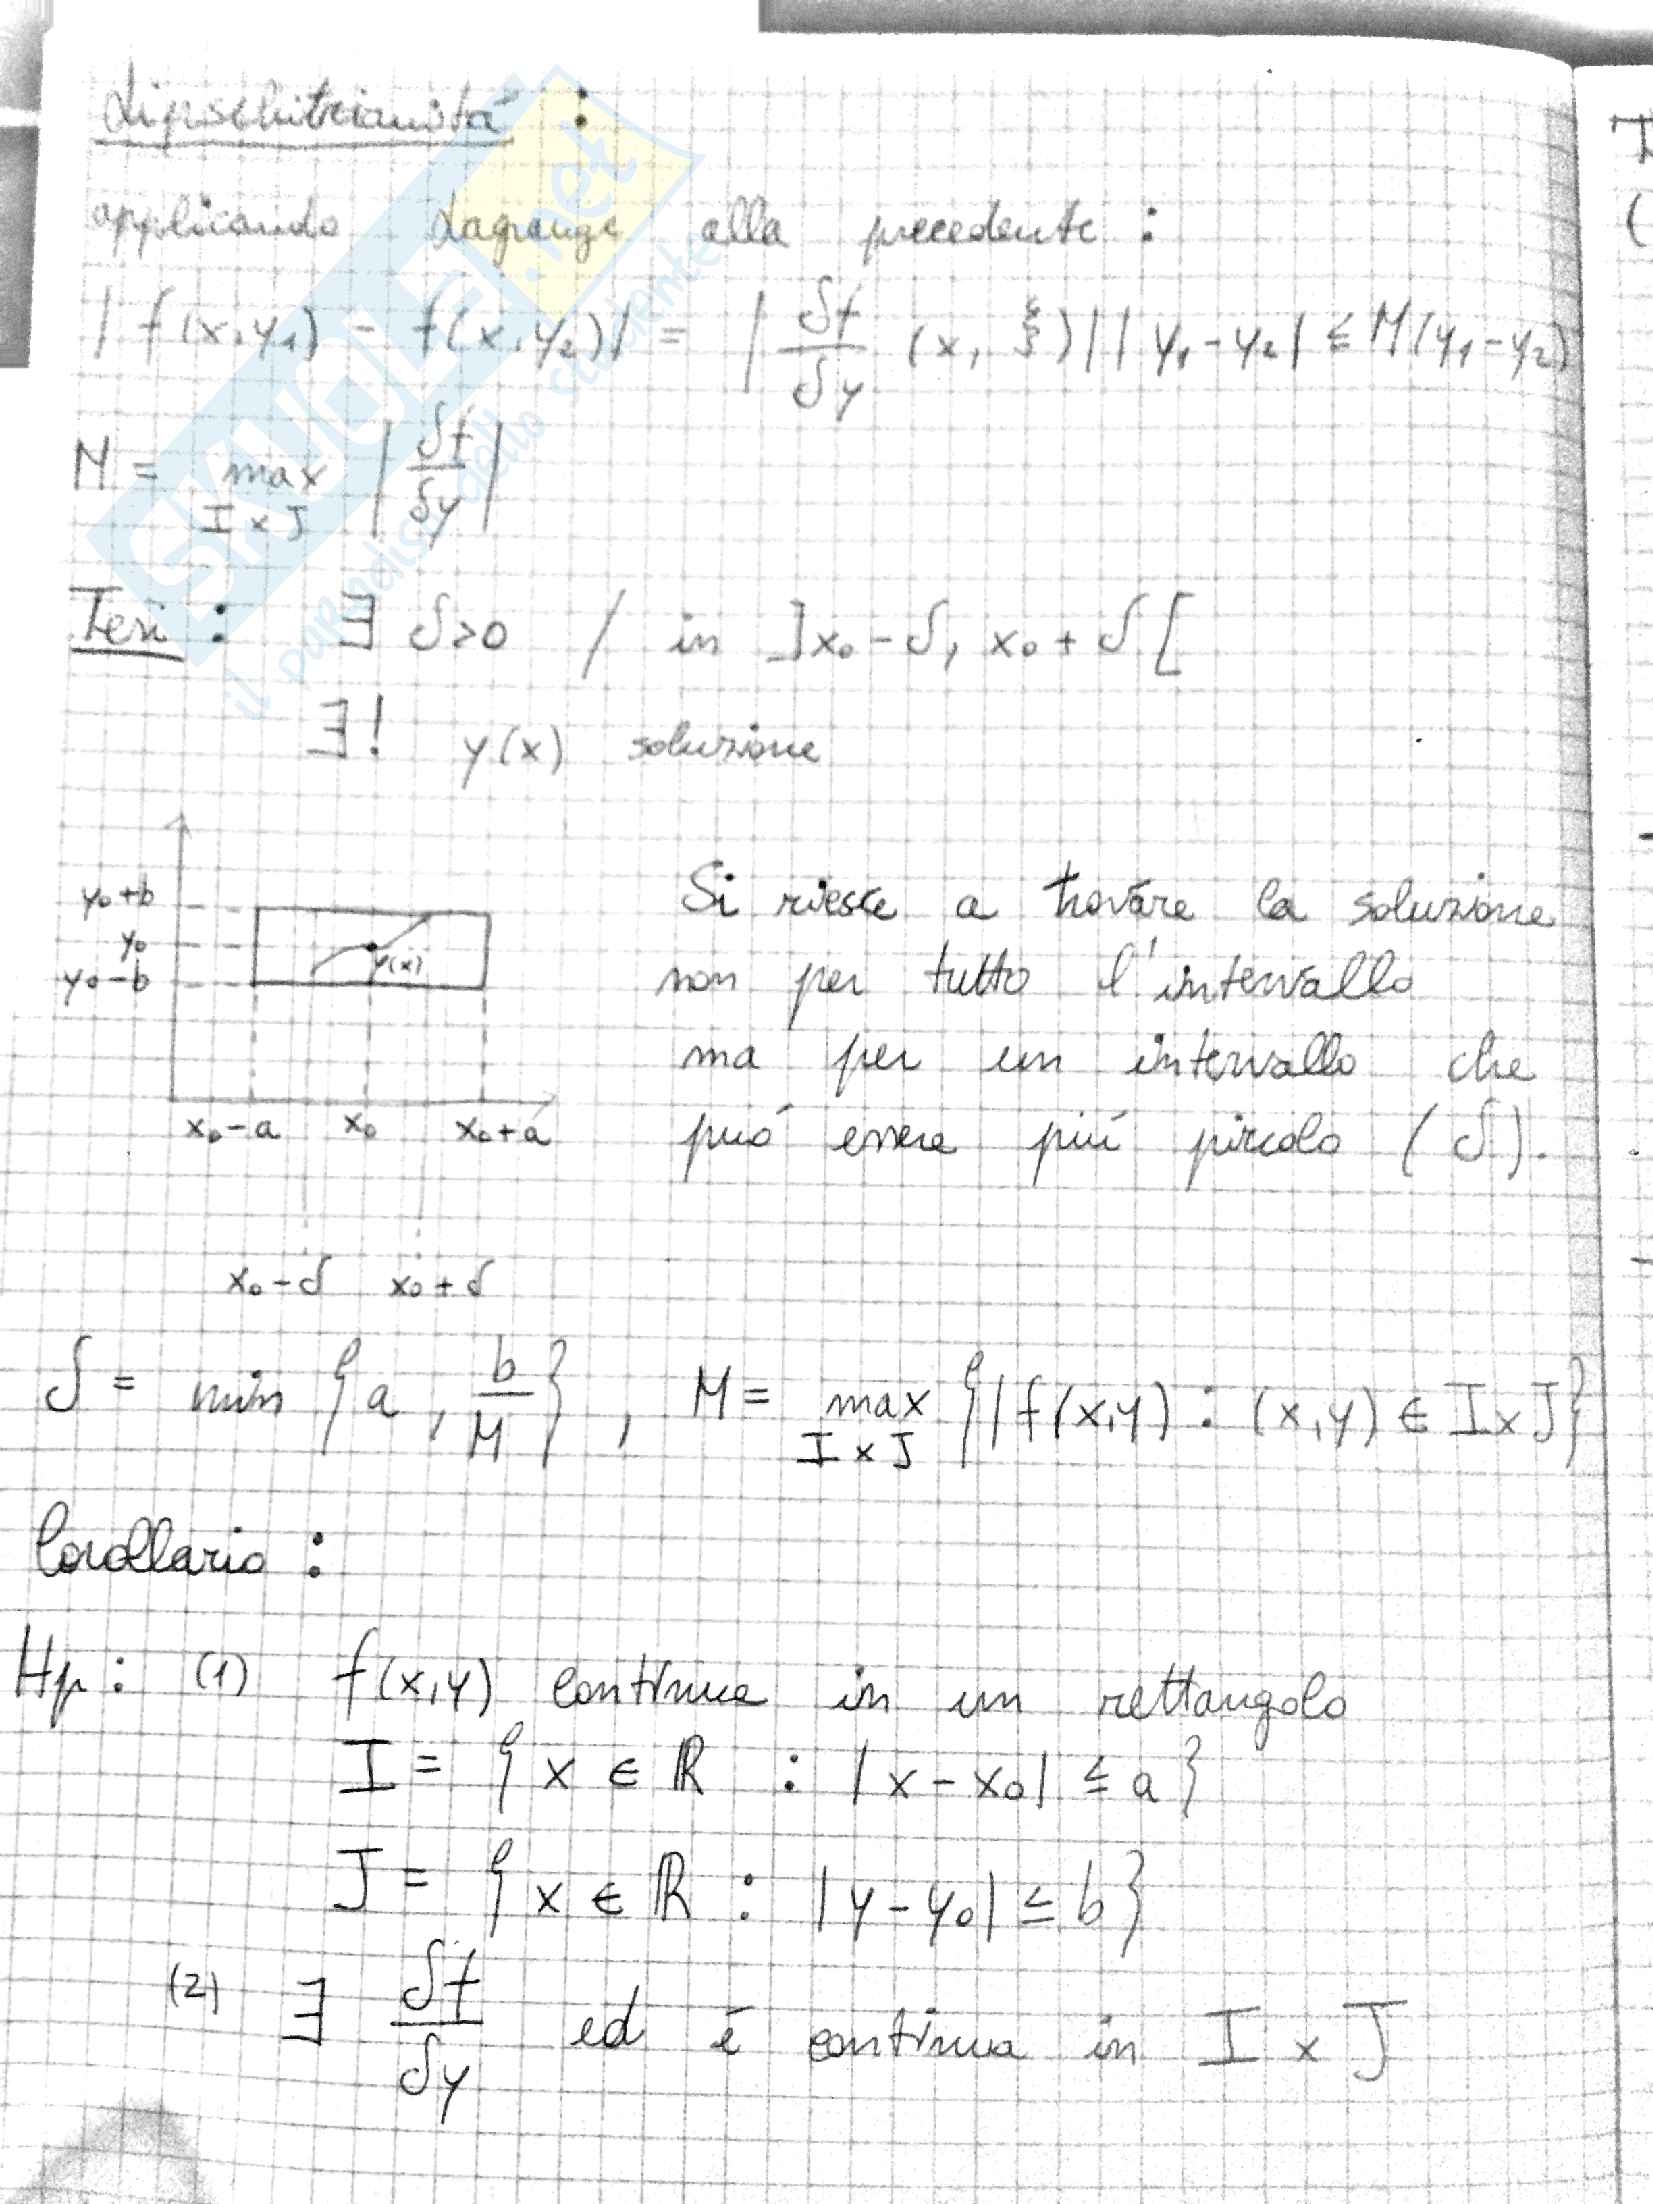 Lipschitzianità :
applicando Lagrange alla precedente :
| f(x,y₁) - f(x,y₂)| = | δf/δy (x, ξ)| | y₁-y₂| ≤ M(y₁-y₂)
M = max I×J | δf/δy |
Tesi : ∃ δ>0 / in ]x₀-δ, x₀+δ[
∃! y(x) soluzione
y₀+b
y₀
y(x)
y₀-b
x₀-a x₀ x₀+a
x₀-δ x₀+δ
Si riesce a trovare la soluzione
non per tutto l'intervallo
ma per un intervallo che
può essere più piccolo (δ).
δ = min {a, b/M} , M = max I×J {|f(x,y) : (x,y) ∈ I×J}
Corollario :
Hp : (1) f(x,y) continua in un rettangolo
I = {x ∈ ℝ : |x-x₀| ≤ a}
J = {x ∈ ℝ : |y-y₀| ≤ b}
(2) ∃ δf/δy ed é continua in I × J
SKUOLA.net
il paradiso dello studente